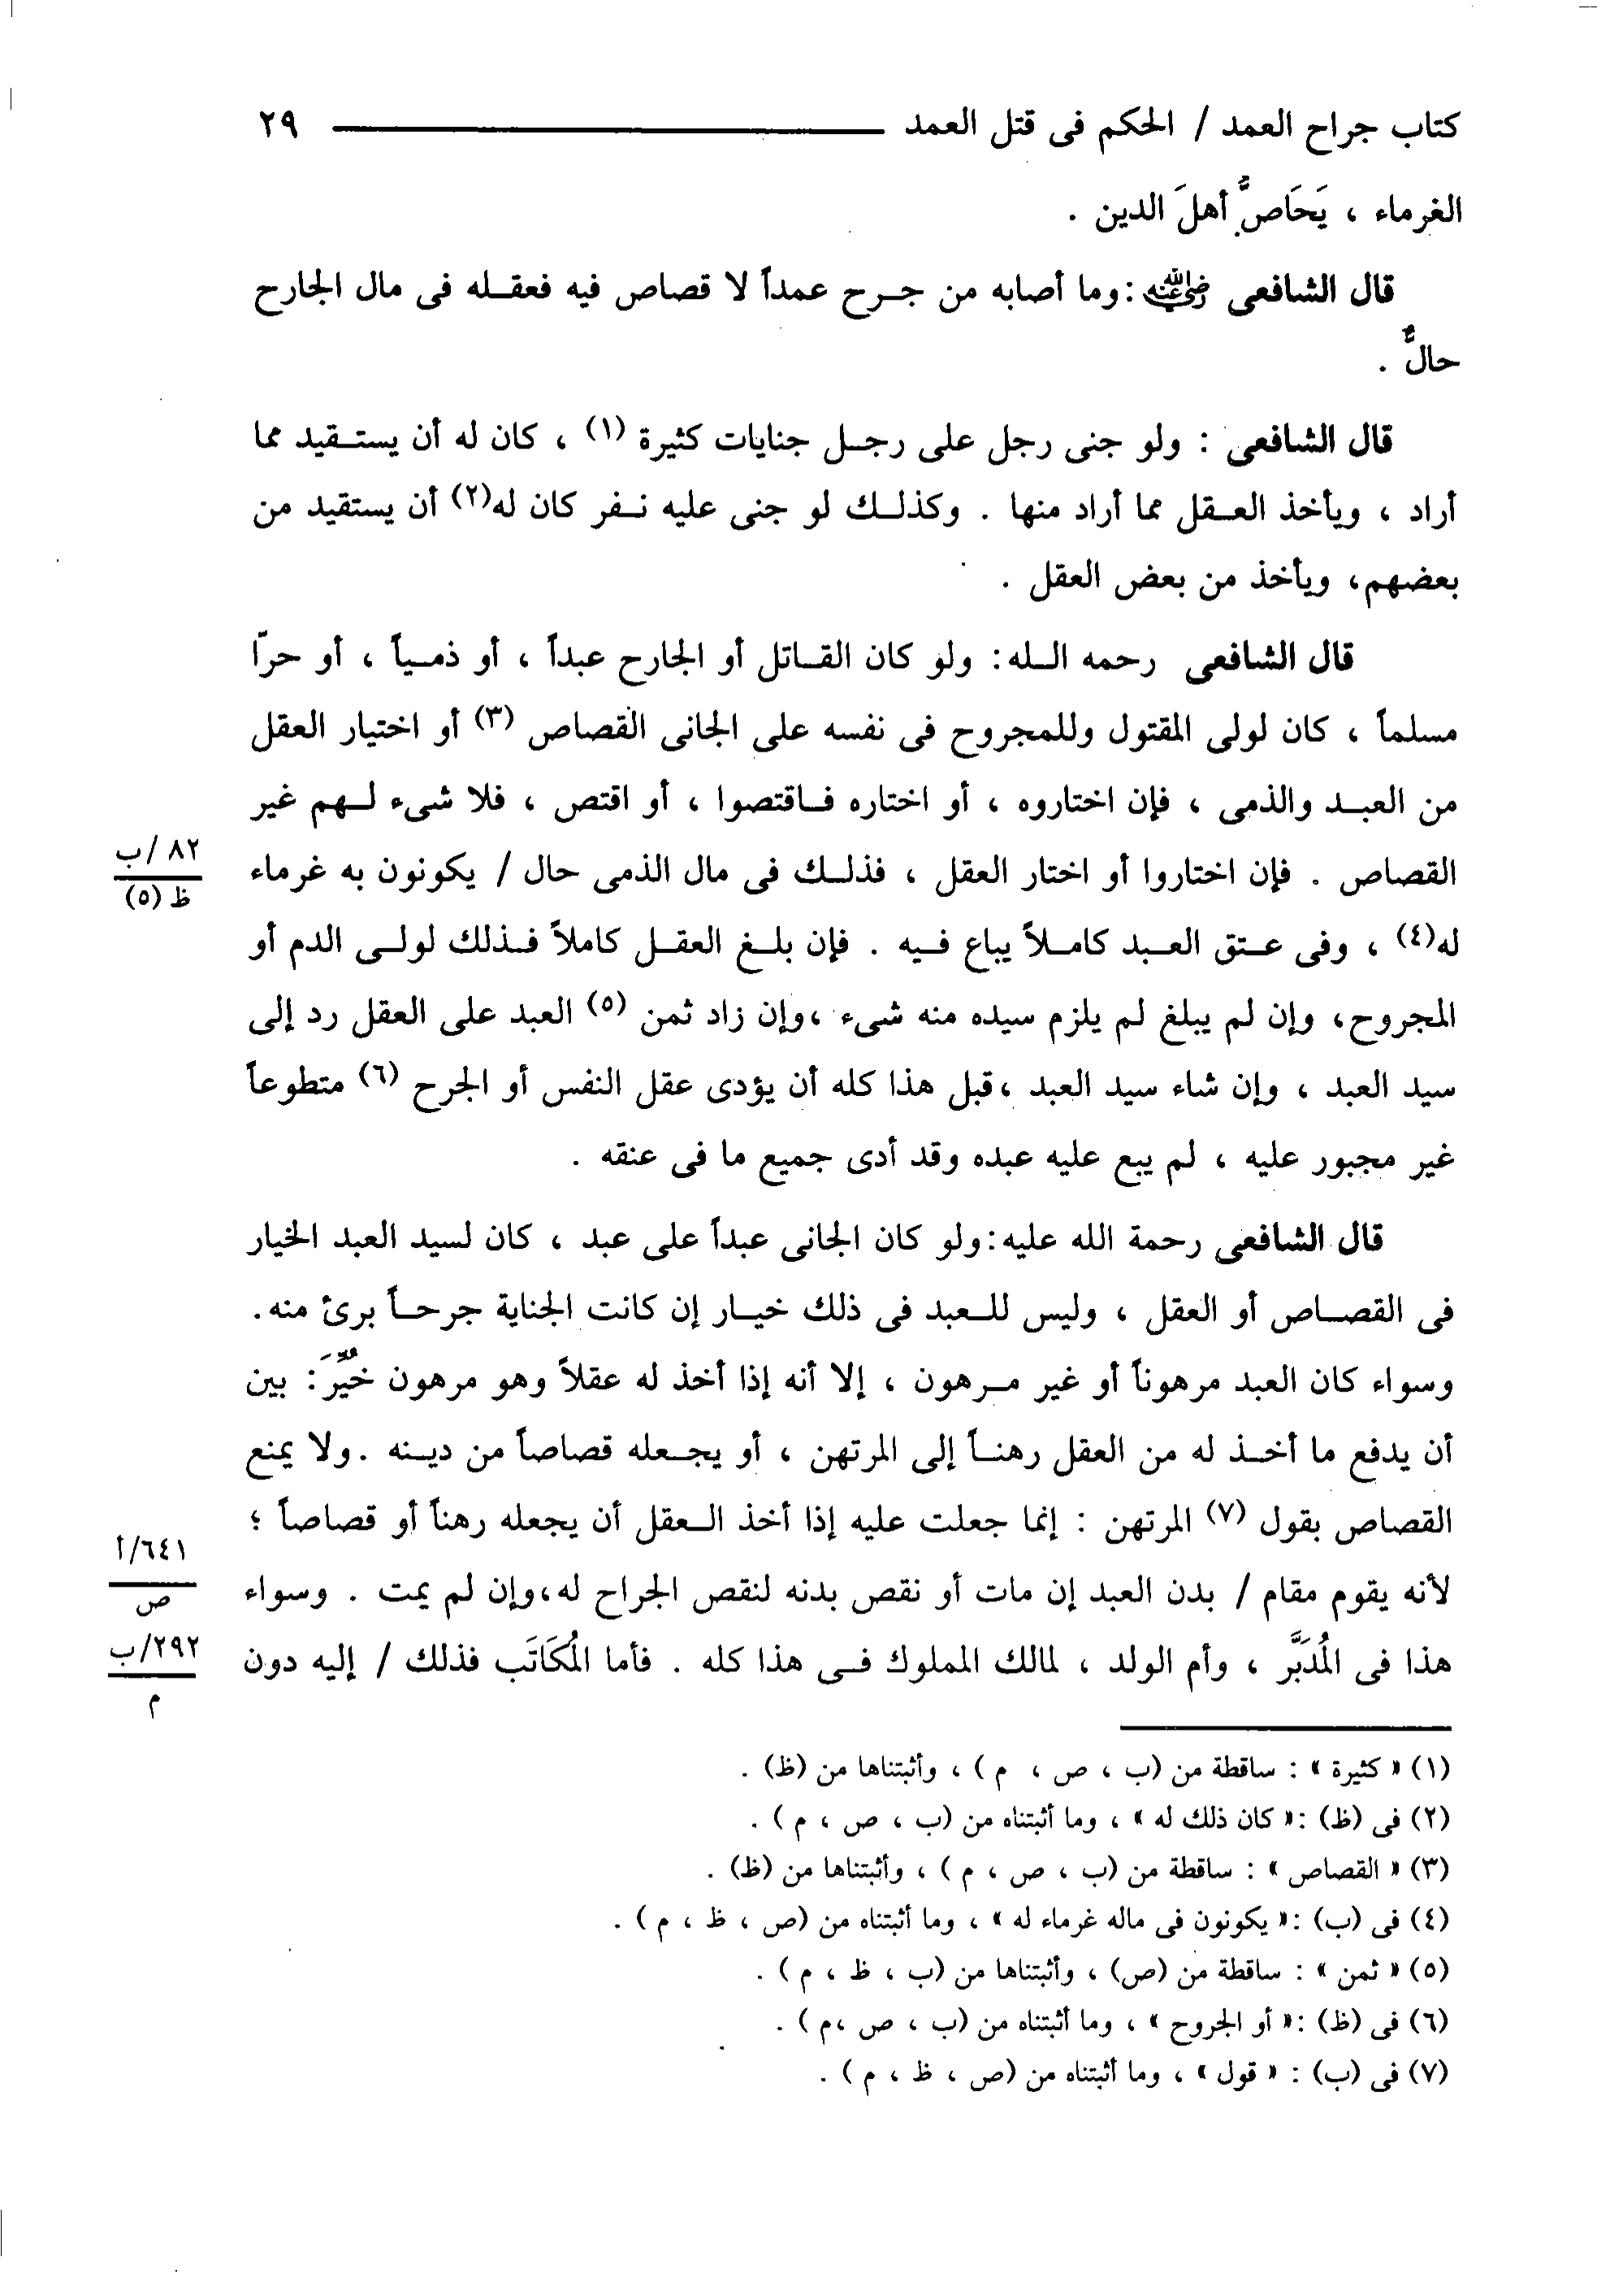 كتاب جراح العمد / الحكم فى قتل العمد ٢٩
الغرماء ، يَحَاصُّ أهلَ الدين .
قال الشافعى رضي الله عنه : وما أصابه من جرح عمداً لا قصاص فيه فعقله فى مال الجارح
حالٌّ .
قال الشافعى : ولو جنى رجل على رجل جنايات كثيرة (١) ، كان له أن يستقيد مما
أراد ، ويأخذ العقل مما أراد منها . وكذلك لو جنى عليه نفر كان له(٢) أن يستقيد من
بعضهم، ويأخذ من بعض العقل .
قال الشافعى رحمه الله: ولو كان القاتل أو الجارح عبداً ، أو ذمياً ، أو حرّا
مسلماً ، كان لولى المقتول وللمجروح فى نفسه على الجانى القصاص (٣) أو اختيار العقل
من العبد والذمى ، فإن اختاروه ، أو اختاره فاقتصوا ، أو اقتص ، فلا شىء لهم غير
القصاص . فإن اختاروا أو اختار العقل ، فذلك فى مال الذمى حال / يكونون به غرماء
٨٢ /ب
ظ (٥)
له(٤) ، وفى عتق العبد كاملاً يباع فيه . فإن بلغ العقل كاملاً فذلك لولى الدم أو
المجروح، وإن لم يبلغ لم يلزم سيده منه شىء ،وإن زاد ثمن (٥) العبد على العقل رد إلى
سيد العبد ، وإن شاء سيد العبد ،قبل هذا كله أن يؤدى عقل النفس أو الجرح (٦) متطوعاً
غير مجبور عليه ، لم يبع عليه عبده وقد أدى جميع ما فى عنقه .
قال الشافعى رحمة الله عليه:ولو كان الجانى عبداً على عبد ، كان لسيد العبد الخيار
فى القصاص أو العقل ، وليس للعبد فى ذلك خيار إن كانت الجناية جرحاً برئ منه.
وسواء كان العبد مرهوناً أو غير مرهون ، إلا أنه إذا أخذ له عقلاً وهو مرهون خُيِّرَ: بين
أن يدفع ما أخذ له من العقل رهناً إلى المرتهن ، أو يجعله قصاصاً من دينه .ولا يمنع
القصاص بقول (٧) المرتهن : إنما جعلت عليه إذا أخذ العقل أن يجعله رهناً أو قصاصاً ؛
لأنه يقوم مقام / بدن العبد إن مات أو نقص بدنه لنقص الجراح له،وإن لم يمت . وسواء
٦٤١/أ
ص
هذا فى المُدَبَّر ، وأم الولد ، لمالك المملوك فى هذا كله . فأما المُكَاتَب فذلك / إليه دون
٢٩٢/ب
م
(١) « كثيرة » : ساقطة من (ب ، ص ، م ) ، وأثبتناها من (ظ) .
(٢) فى (ظ) :« كان ذلك له » ، وما أثبتناه من (ب ، ص ، م ) .
(٣) « القصاص » : ساقطة من (ب ، ص ، م ) ، وأثبتناها من (ظ) .
(٤) فى (ب) :« يكونون فى ماله غرماء له » ، وما أثبتناه من (ص ، ظ ، م ) .
(٥) « ثمن » : ساقطة من (ص) ، وأثبتناها من (ب ، ظ ، م ) .
(٦) فى (ظ) :« أو الجروح » ، وما أثبتناه من (ب ، ص ،م ) .
(٧) فى (ب) : « قول » ، وما أثبتناه من (ص ، ظ ، م ) .